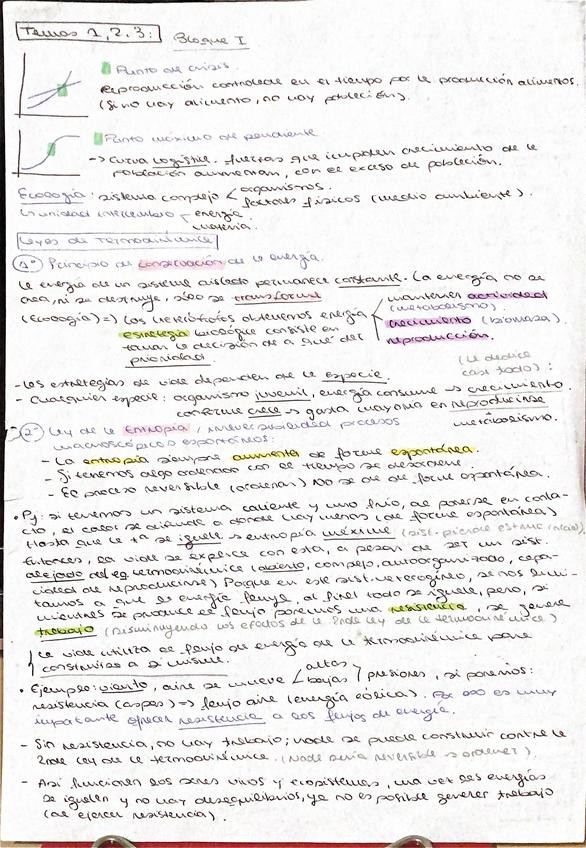 Temas 1, 2, 3:
Bloque I
Punto de crisis.
Reproducción controlada en el tiempo por la producción alimentos.
(Si no hay alimento, no hay población).
Punto máximo de pendiente
-> Curva logística. fuerzas que impiden crecimiento de la
población aumentan, con el exceso de población.
Ecología: sistema complejo < organismos.
factores físicos (medio ambiente).
unidad intercambio energía
materia.
Leyes de Termodinámica
1º Principio de conservación de la energía.
la energía de un sistema aislado permanece constante. La energía no se
crea, ni se destruye, sólo se transforma
(Ecología) => Los heterótrofos obtenemos energía
mantener actividad
(metabolismo)
crecimiento (biomasa)
reproducción.
estrategia biológica consiste en
tomar la decisión de a qué del
prioridad.
- Las estrategias de vida dependen de la especie.
(le dedica
casi todo):
- Cualquier especie: organismo juvenil, energía consume -> crecimiento
conforme crece -> gasta mayoría en reproducirse
metabolismo.
2º Ley de la Entropía / irreversibilidad procesos
macroscópicos espontáneos:
- La entropía siempre aumenta de forma espontánea.
- Si tenemos algo ordenado con el tiempo se desordena.
- El proceso reversible (ordenar) No se da de forma espontánea.
• Pj: si tenemos un sistema caliente y uno frío, al ponerse en conta-
cto, el calor se difunde a donde hay menos (de forma espontánea)
Hasta que la tª se iguale -> entropía máxima (sist. pierde estruc. inicial).
Entonces, la vida se experce con esta, a pesar de ser un sist.
alejado del eq. termodinámico (abierto, complejo, autoorganizado, capa-
cidad de reproducirse) Porque en este sist. heterogéneo, se nos limi-
tamos a que la energía fluya, al final todo se iguala, pero, si
mientras se produce el flujo ponemos una resistencia, se genera
trabajo (Disminuyendo los efectos de la 2nda ley de la termodinámica)
La vida utiliza el flujo de energía de la termodinámica para
construirse a sí misma.
• Ejemplo: viento, aire se mueve < altas bajas > presiones, si ponemos:
resistencia (aspas) => flujo aire (energía eólica). Por eso es muy
importante ofrecer resistencia a los flujos de energía.
- Sin resistencia, no hay trabajo; nada se puede construir contra la
2nda ley de la termodinámica. (Nada sería reversible -> ordenar).
- Así funcionan los seres vivos y ecosistemas, una vez las energías
se igualen y no hay desequilibrios, ya no es posible generar trabajo
(al ejercer resistencia).